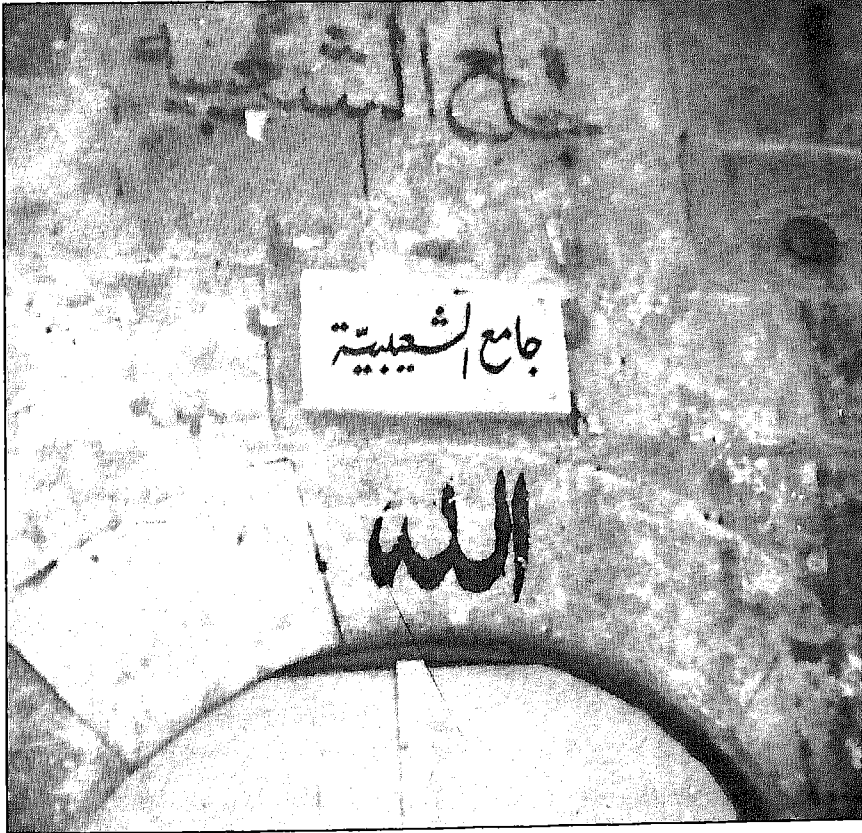 جامع الشعيبية
جامع الشعيبيّة
الله